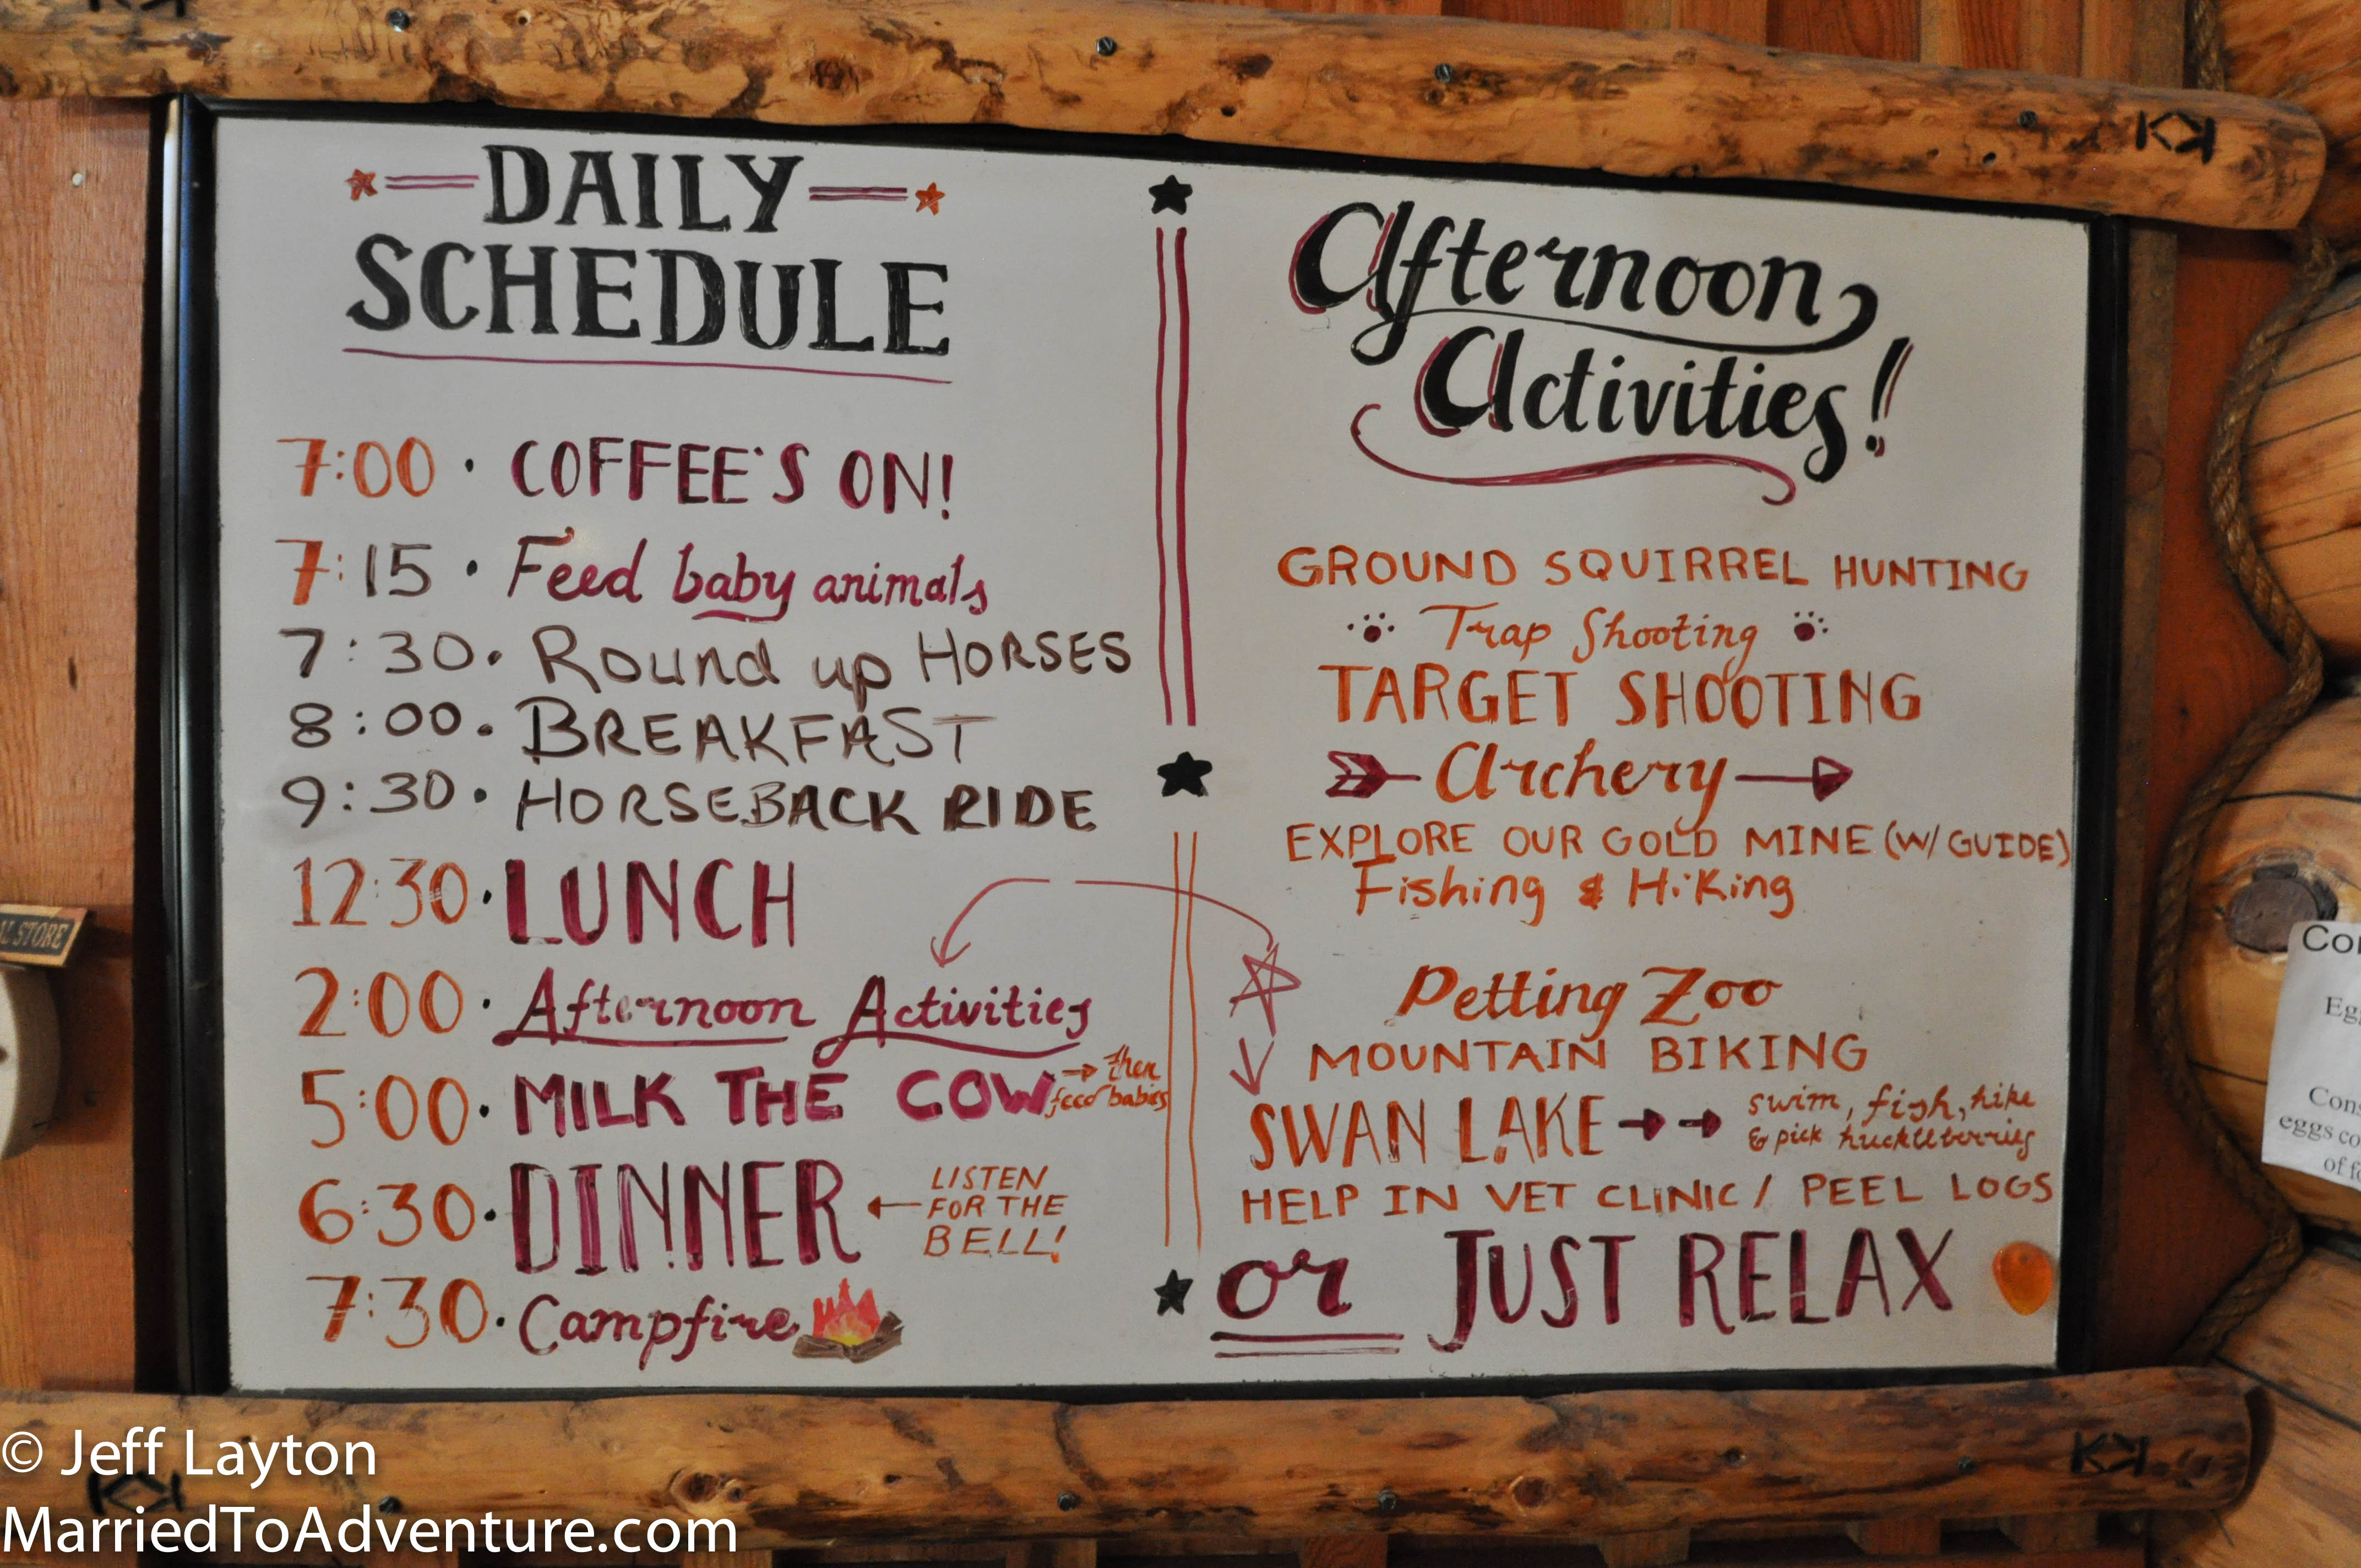 DAILY
SCHEDULE
7:00 · COFFEE'S ON!
7:15 · Feed baby animals
7:30 · Round up HORSES
8:00 · BREAKFAST
9:30 · HORSEBACK RIDE
12:30 · LUNCH
2:00 · Afternoon Activities
5:00 · MILK THE COW → then
feed babies
6:30 · DINNER ← LISTEN
FOR THE
BELL!
7:30 · Campfire
Afternoon
Activities!
GROUND SQUIRREL HUNTING
Trap Shooting
TARGET SHOOTING
Archery
EXPLORE OUR GOLD MINE (W/ GUIDE)
Fishing & Hiking
Petting Zoo
MOUNTAIN BIKING
SWAN LAKE →→ swim, fish, hike
& pick huckleberries
HELP IN VET CLINIC / PEEL LOGS
or JUST RELAX
STORE
eggs co
© Jeff Layton
MarriedToAdventure.com